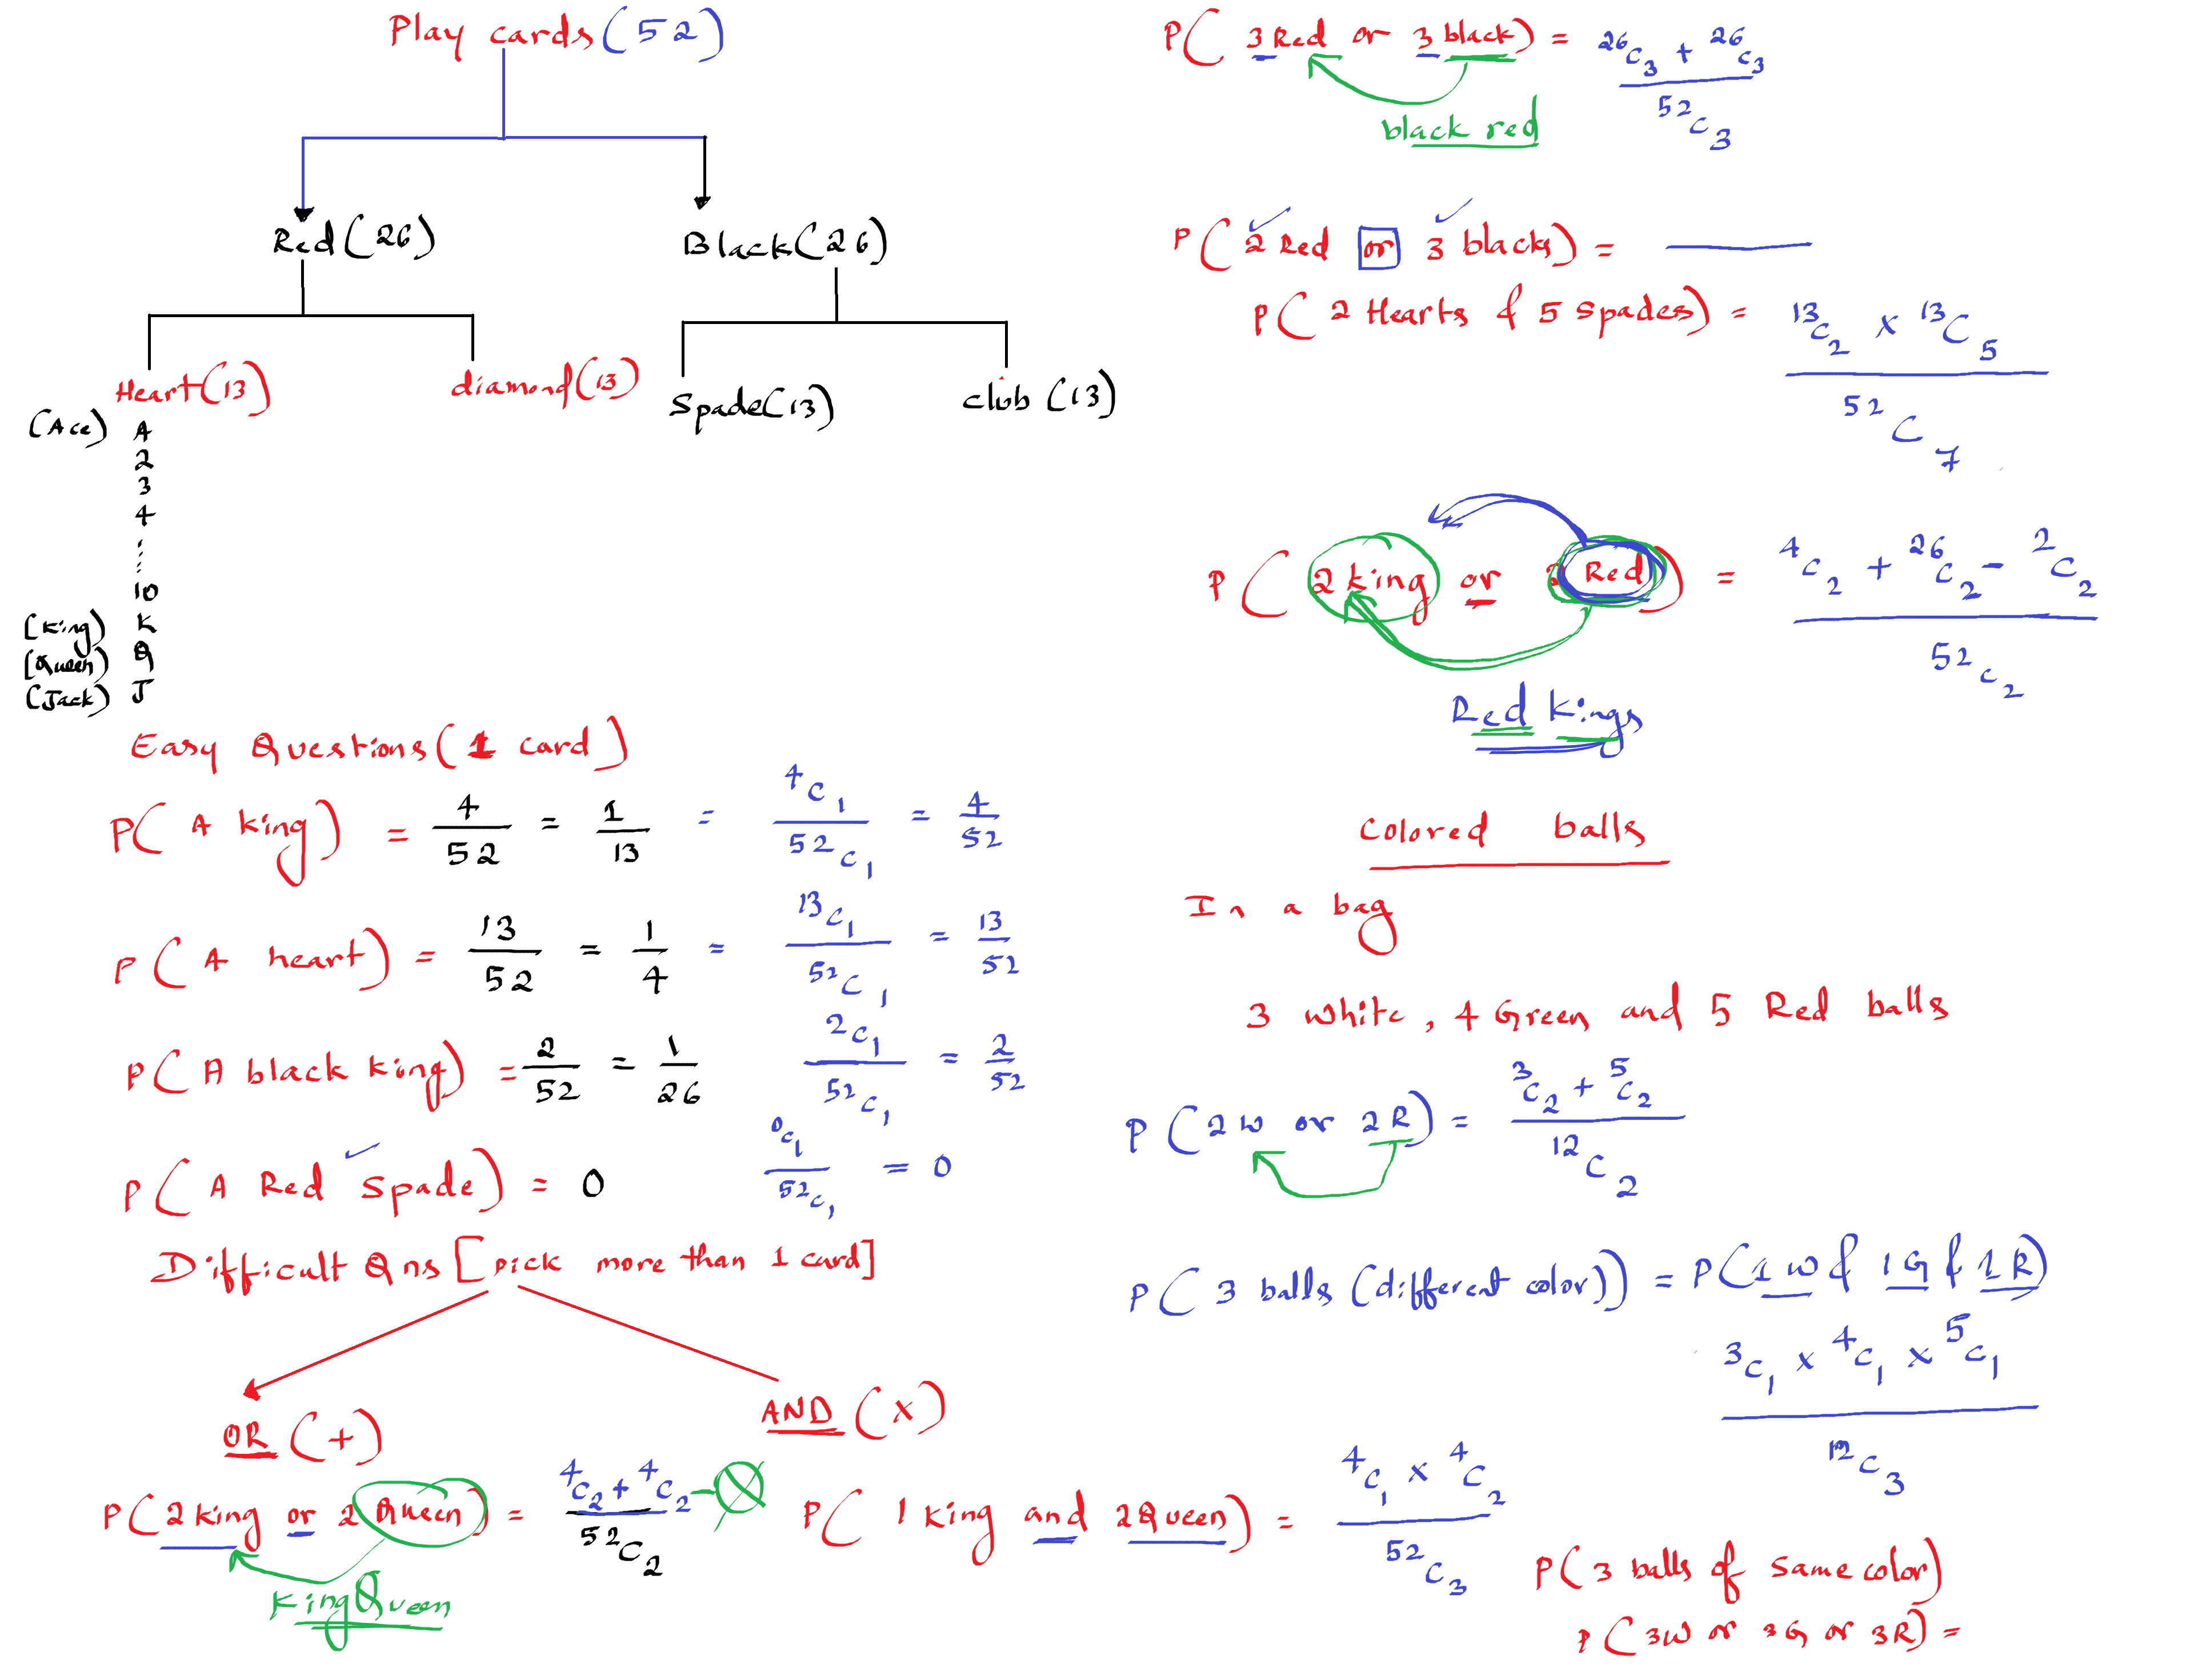 Play cards (52)
Red (26)
Black (26)
Heart (13)
diamond (13)
Spade (13)
club (13)
(Ace) A
2
3
4
10
(King) K
(Queen) Q
(Jack) J
Easy Questions (1 card)
P( A king) = 4/52 = 1/13 = ⁴C₁/⁵²C₁ = 4/52
P( A heart) = 13/52 = 1/4 = ¹³C₁/⁵²C₁ = 13/52
P( A black king) = 2/52 = 1/26 ²C₁/⁵²C₁ = 2/52
P( A Red Spade) = 0 ⁰C₁/⁵²C₁ = 0
Difficult Qns [pick more than 1 card]
OR (+)
AND (x)
P( 2 king or 2 Queen) = (⁴C₂ + ⁴C₂ - 0)/⁵²C₂
King Queen
P( 1 king and 2 Queen) = (⁴C₁ x ⁴C₂)/⁵²C₃
P( 3 Red or 3 black) = (²⁶C₃ + ²⁶C₃)/⁵²C₃
black red
P( 2 Red or 3 blacks) =
P( 2 Hearts & 5 Spades) = (¹³C₂ x ¹³C₅)/⁵²C₇
P( 2 king or 2 Red) = (⁴C₂ + ²⁶C₂ - ²C₂)/⁵²C₂
Red Kings
Colored balls
In a bag
3 White, 4 Green and 5 Red balls
P( 2 W or 2 R) = (³C₂ + ⁵C₂)/¹²C₂
P( 3 balls (different color)) = P( 1 W & 1 G & 1 R)
(³C₁ x ⁴C₁ x ⁵C₁)/¹²C₃
P( 3 balls of same color)
P( 3W or 3G or 3R) =